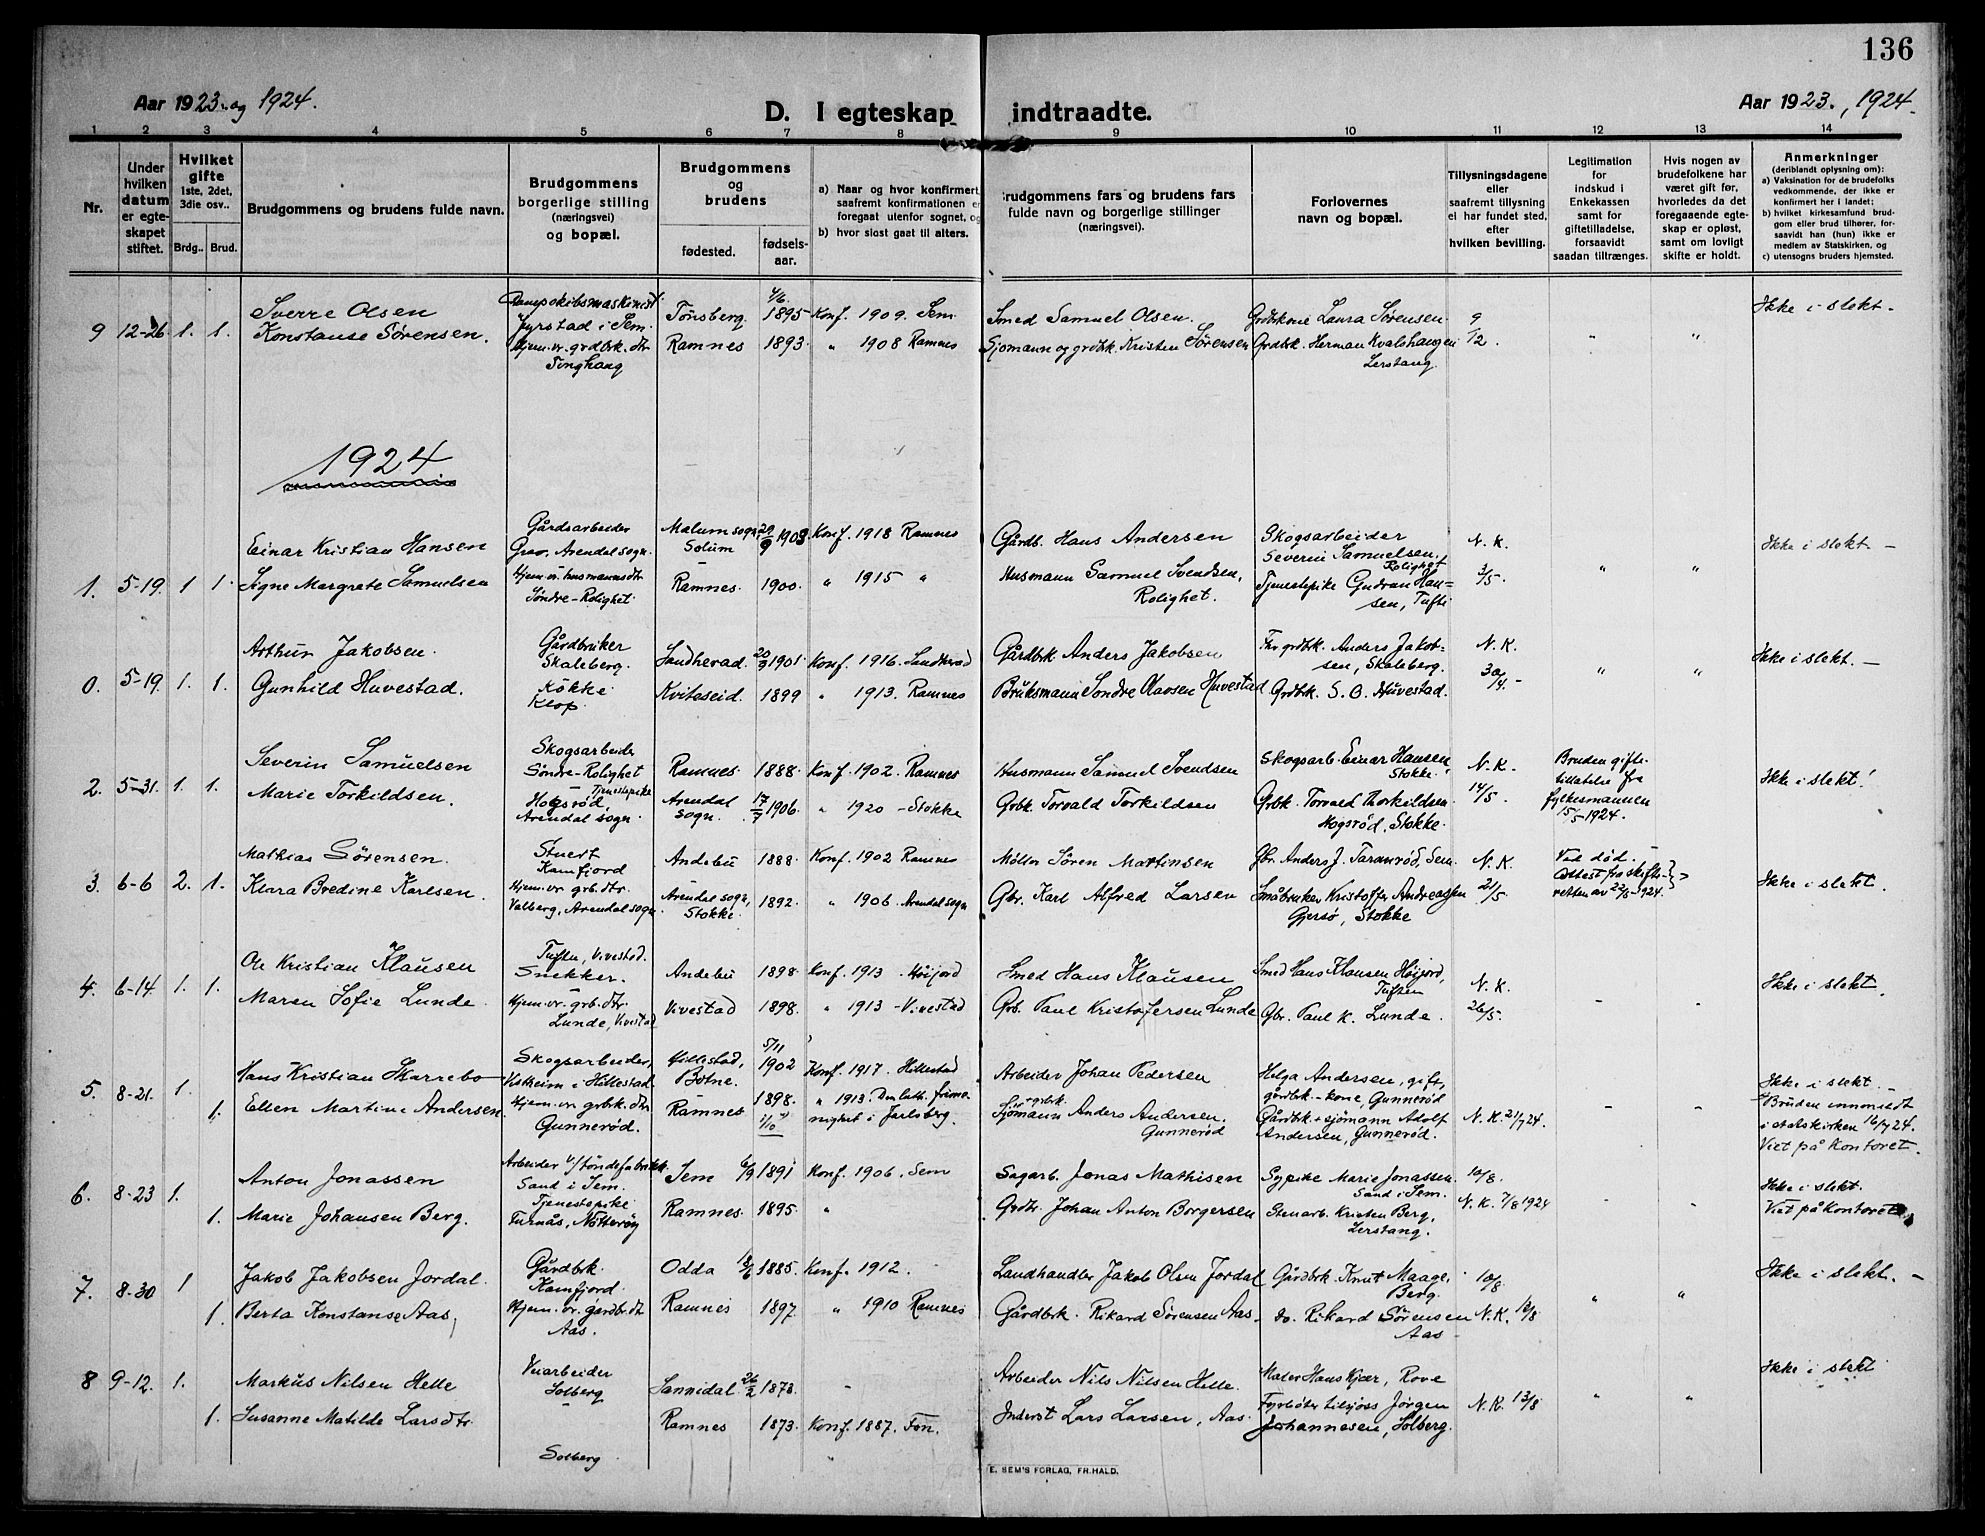 136
Aar 1923 og 1924.
D. I egteskap indtraadte.
Aar 1923, 1924.
1 2 3 4 5 6 7 8 9 10 11 12 13 14
Nr.
Under hvilken datum er egteskapet stiftet.
Hvilket gifte 1ste, 2det, 3die osv..
Brdg.. Brud.
Brudgommens og brudens fulde navn.
Brudgommens borgerlige stilling (næringsvei) og bopæl.
Brudgommens og brudens
fødested. fødselsaar.
a) Naar og hvor konfirmert, saafremt konfirmationen er foregaat utenfor sognet, og
b) hvor sidst gaat til alters.
Brudgommens fars og brudens fars fulde navn og borgerlige stillinger (næringsvei).
Forlovernes navn og bopæl.
Tillysningsdagene eller saafremt tillysning ei har fundet sted, efter hvilken bevilling.
Legitimation for indskud i Enkekassen samt for giftetilladelse, forsaavidt saadan tiltrænges.
Hvis nogen av brudefolkene har været gift før, hvorledes da det foregaaende egteskap er opløst, samt om lovligt skifte er holdt.
Anmerkninger (deriblandt oplysning om):
a) Vaksination for de brudefolks vedkommende, der ikke er konfirmert her i landet;
b) hvilket kirkesamfund brudgom eller brud tilhører, forsaavidt han (hun) ikke er medlem av Statskirken, og
c) utensogns bruders hjemsted.
9 12-26 1. 1. Sverre Olsen Dampskibsmaskinist Jyrstad i Sem. Tönsberg 4/6 1895 Konf. 1909. Sem Smed Samuel Olsen. Grdbrkone Laura Sörensen 9/12. Ikke i slekt.
Konstanse Sørensen. Hjem.v. grdbrk. dtr. Tinghaug Ramnes 1893 " 1908 Ramnes Sjømann og grdbrk. Kristen Sørensen Grdbrk. Herman Kvalshaugen Lerstang. " "
1924
1. 5-19 1 1. Einar Kristian Hansen Gårdsarbeider Grav, Arendal sogn. Solum 29/9 1903 Konf. 1918 Ramnes Gårdb. Hans Andersen Skogsarbeider Severin Samuelsen, Rolighet N.K. Ikke i slekt –
Signe Margrete Samuelsen Hjem.v. husmannsdtr Söndre-Rolighet. Ramnes 1900 " 1915 " Husmann Samuel Svendsen, Rolighet. Tjenestepike Gudrun Hansen, Tufte 3/5. " "
0. 5-19. 1. 1. Arthur Jakobsen. Gårdbruker Skaleberg. Sandherad. 20/9 1901 Konf. 1916. Sandherad Gårdbrk Anders Jakobsen Fhv grdbk. Anders Jakobsen, Skaleberg. N.K. Ikke i slekt. –
Gunhild Huvestad. Kokke Klop Kviteseid. 1899 " 1913. Ramnes Bruksmann Sondre Olavsen Huvestad Grdbrk. S. O. Huvestad. 30/4. – " "
2. 5-31. 1. 1. Severin Samuelsen Skogsarbeider Söndre-Rolighet Ramnes 1888 Konf. 1902. Ramnes Husmann Samuel Svendsen Skogsarb. Einar Hansen Stokke. N.K. Bruden giftetillatelse fra fylkesmannen 15/5-1924. Ikke i slekt!
Marie Torkildsen. Tjenestepike Hogsrød, Arendal sogn. Arendal sogn. 17/7 1906 " 1920 – Stokke Grbk. Torvald Torkildsen Grbk. Torvald Thorkildsen. Hogsröd, Stokke. 14/5.
3. 6-6 2. 1. Mathias Sörensen. Stuert Kamfjord Andebu 1888 Konf. 1902 Ramnes Møller Søren Martinsen Gbr. Anders J. Taranröd, Sem. N.K. Ved död. – Attest fra skifteretten av 22/5-1924. Ikke i slekt.
Klara Bredine Karlsen. Hjem.vr grb.dtr. Valberg, Arendal sogn. Arendal sogn, Stokke. 1892 " 1906. Arendal sogn Gbr. Karl Alfred Larsen Småbruker Kristoffer Andreassen Gjersø, Stokke 21/5.
4. 6-14 1. 1. Ole Kristian Klausen Tuften, Vivestad. Snekker. Andebu 1898 Konf. 1913 – Höijord Smed Hans Klausen Smed Hans Klausen Höijord, Tuften N.K. Ikke i slekt.
Maren Sofie Lunde Hjem.vr. grb.dtr. Lunde, Vivestad Vivestad 1898. " 1913 – Vivestad Grb. Paul Kristofersen Lunde Gbr. Paul K. Lunde. 26/5.
5. 8-21. 1. Hans Kristian Skarrebo Skogsarbeider, i Hillestad Hillestad, Botne. 5/11 1902 Konf. 1917. Hillestad Arbeider Johan Pedersen Helga Andersen, gift, gårdbk.-kone, Gunneröd Ikke i slekt. –
1. Ellen Martine Andersen. Hjem.vr grbrk. dtr. Gunneröd. Ramnes 1898. 1/10 " 1913. Den luth. frimenighet i Jarlsberg. Sjömann + grbrk. Anders Andersen. Gunneröd Gårdbk + sjömann Adolf Andersen, Gunneröd. N.K. 21/7 24. Bruden innmeldt i statskirken 16/7 24. Viet på kontoret.
6. 8-23 1. Anton Jonassen Arbeider v/töndefabrikk Sand i Sem. Sem 6/9 1891 Konf. 1906. Sem Sagarb. Jonas Mathisen Sypike Marie Jonassen. Sand i Sem. 10/8. Ikke i slekt.
1. Marie Johansen Berg. Tjenestepike Furnås, Nötteröy Ramnes. 1895. " Grdbr. Johan Anton Borgersen Stenarb. Kristen Berg, Lerstang. N.K. 7/8 1924 Viet på kontoret
7. 8-30 1 Jakob Jakobsen Jordal. Gårdbk. Kamfjord. Odda 1885. Konf. 1912. Landhandler Jakob Olsen Jordal Gårdbrk. Knut Maage, Berg. 10/8. Ikke i slekt. –
1. Berta Konstanse Aas, Hjem.vr. gårdbr.dtr Aas. Ramnes 1897 " 1910 Ramnes Gårdbrk. Rikard Sörensen Aas. do. Rikard Sörensen Aas N.K. 10/8 " "
8 9-12. 1. Markus Nilsen Helle Veiarbeider Solberg Sannidal 26/2 1878. – Arbeider Nils Nilsen Helle. Maler Hans Kjær, Rove Ikke i slekt
1. Susanne Matilde Larsdtr. – Solberg Ramnes 1873. Konf. 1887. Fon. Inderst Lars Larsen, Aas. Fyrböter tilsjøss Jörgen Johannesen, Solberg. N.K. 13/8 " "
E. SEM'S FORLAG, FR.HALD.